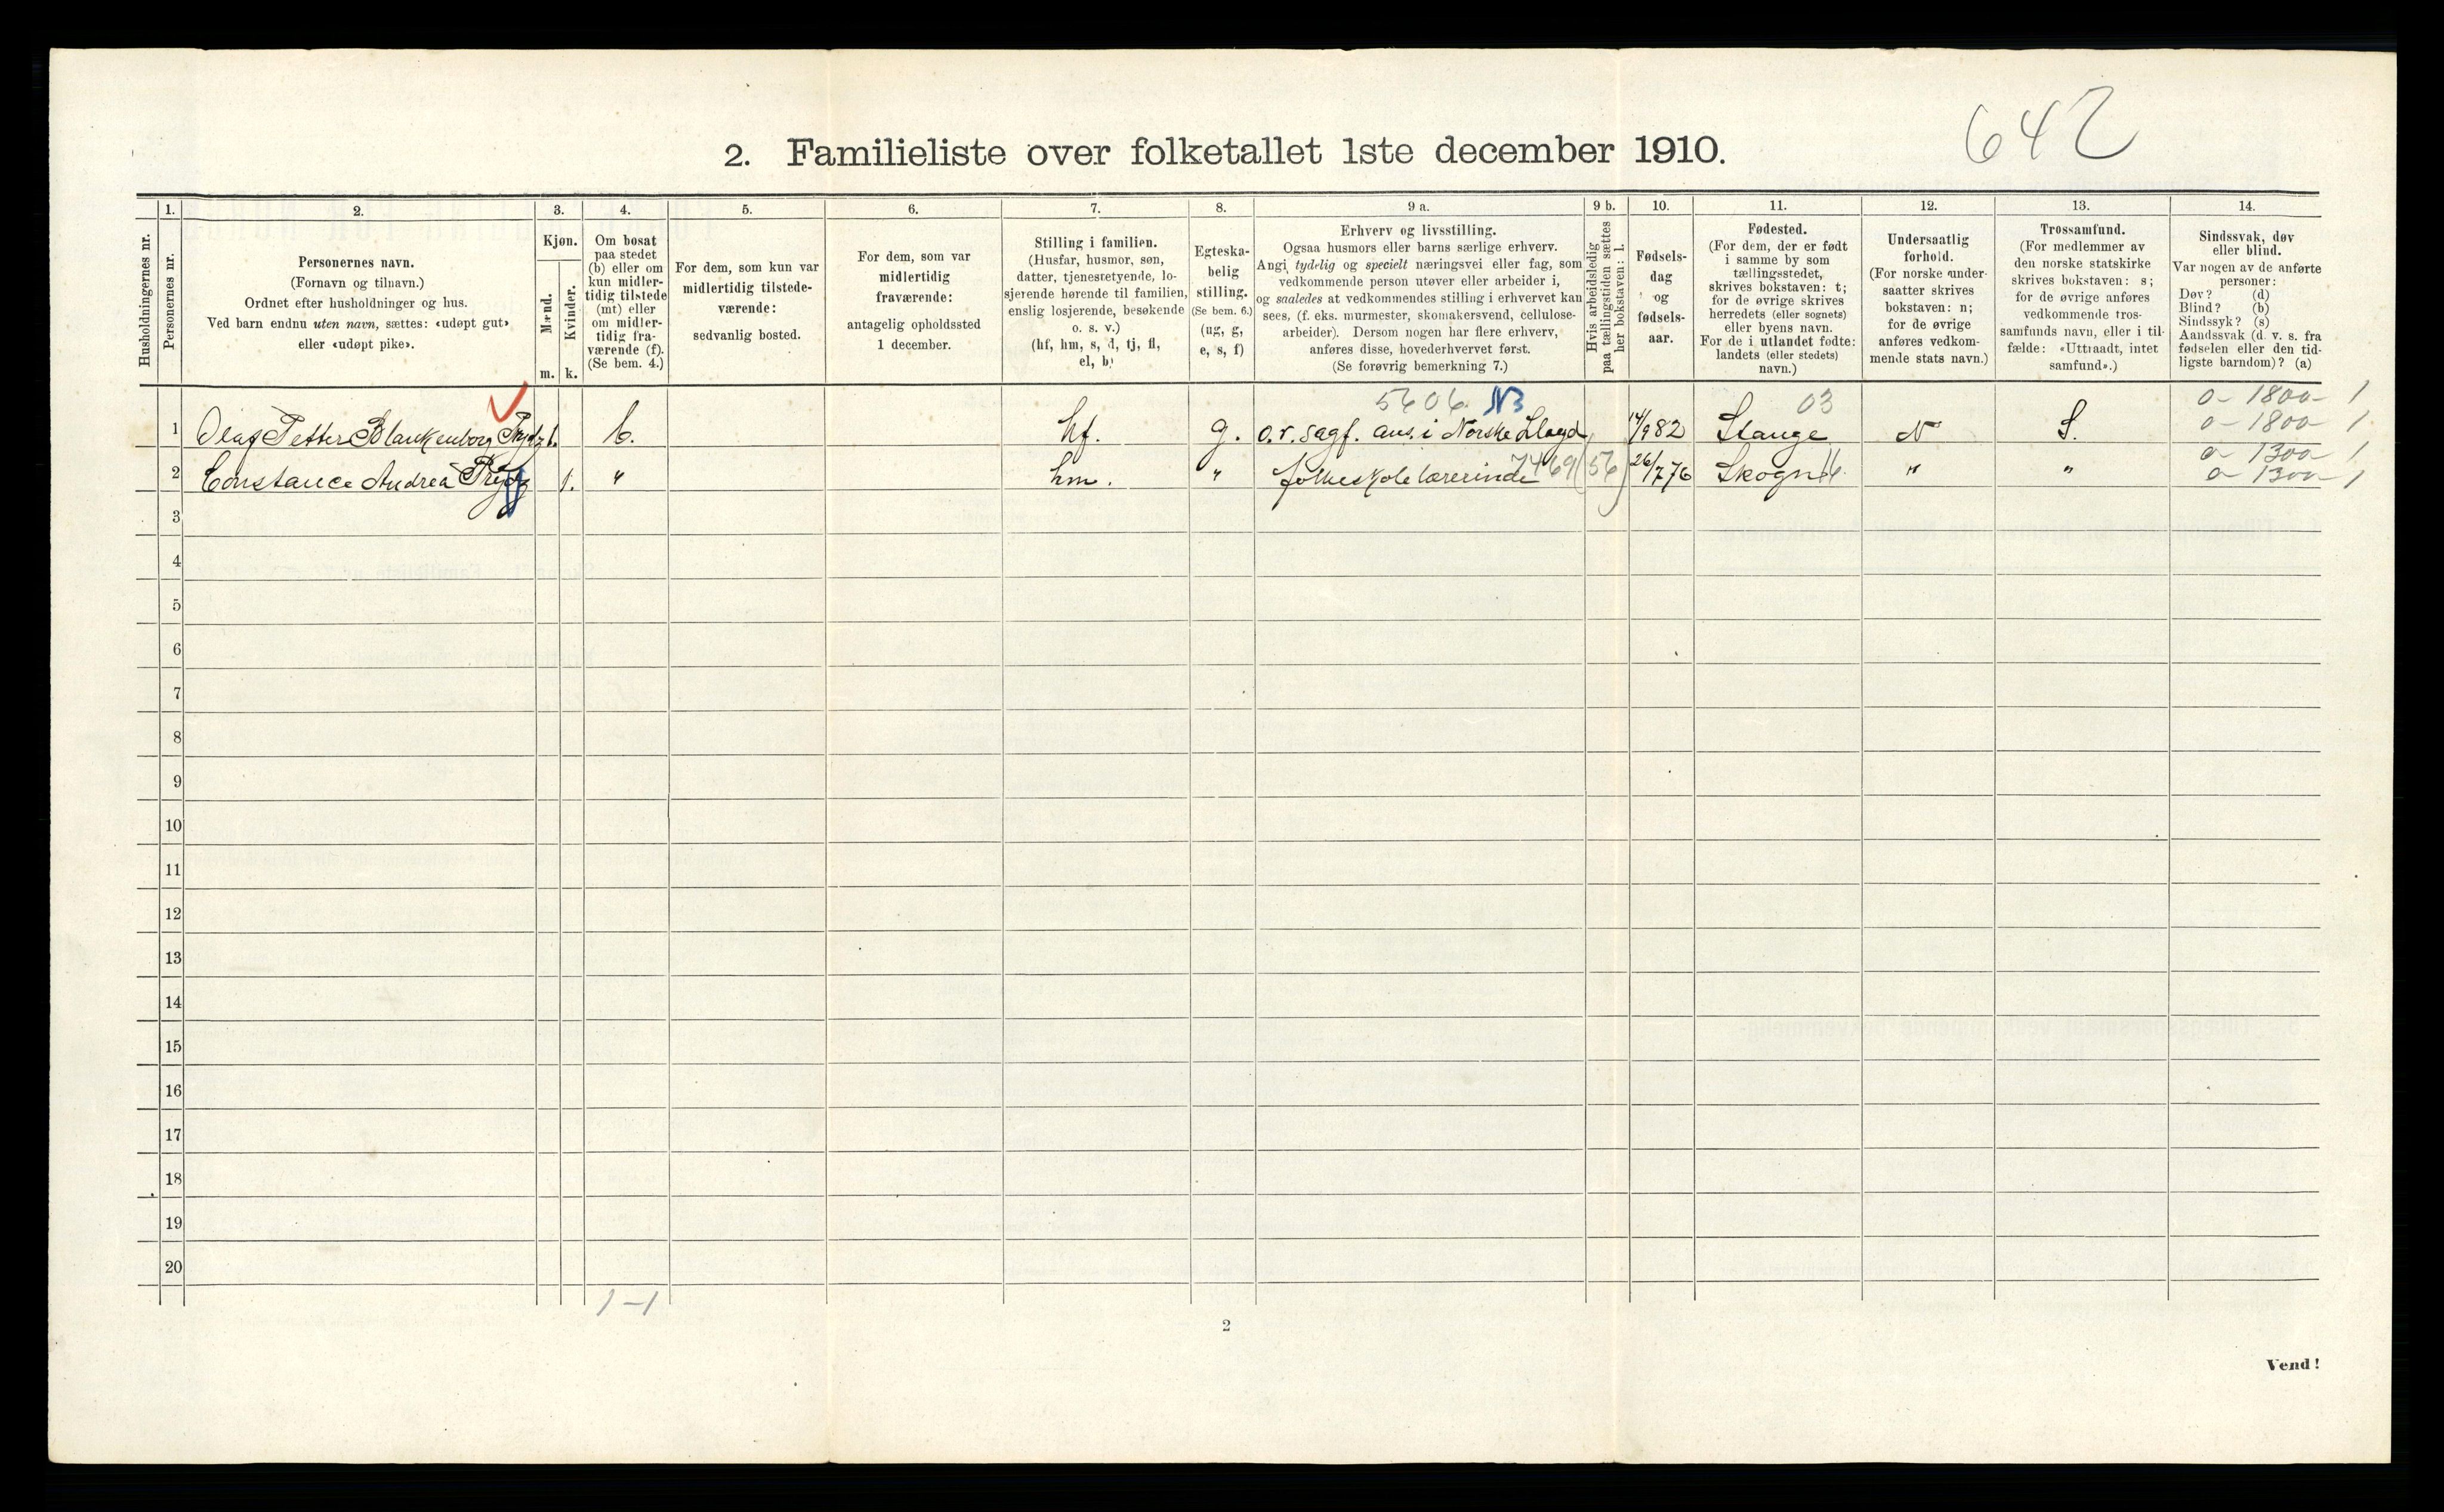 642
2. Familieliste over folketallet 1ste december 1910.
Husholdningernes nr.
1.
Personernes nr.
2.
Personernes navn.
(Fornavn og tilnavn.)
Ordnet efter husholdninger og hus.
Ved barn endnu uten navn, sættes: «udøpt gut»
eller «udøpt pike».
3.
Kjøn.
Mænd.
Kvinder.
m. k.
4.
Om bosat
paa stedet
(b) eller om
kun midler-
tidig tilstede
(mt) eller
om midler-
tidig fra-
værende (f).
(Se bem. 4.)
5.
For dem, som kun var
midlertidig tilstede-
værende:
sedvanlig bosted.
6.
For dem, som var
midlertidig
fraværende:
antagelig opholdssted
1 december.
7.
Stilling i familien.
(Husfar, husmor, søn,
datter, tjenestetyende, lo-
sjerende hørende til familien,
enslig losjerende, besøkende
o. s. v.)
(hf, hm, s, d, tj, fl,
el, b)
8.
Egteska-
belig
stilling.
(Se bem. 6.)
(ug, g,
e, s, f)
9 a.
Erhverv og livsstilling.
Ogsaa husmors eller barns særlige erhverv.
Angi tydelig og specielt næringsvei eller fag, som
vedkommende person utøver eller arbeider i,
og saaledes at vedkommendes stilling i erhvervet kan
sees, (f. eks. murmester, skomakersvend, cellulose-
arbeider). Dersom nogen har flere erhverv,
anføres disse, hovederhvervet først.
(Se forøvrig bemerkning 7.)
9 b.
Hvis arbeidsledig
paa tællingstiden sættes
her bokstaven: l.
10.
Fødsels-
dag
og
fødsels-
aar.
11.
Fødested.
(For dem, der er født
i samme by som
tællingsstedet,
skrives bokstaven: t;
for de øvrige skrives
herredets (eller sognets)
eller byens navn.
For de i utlandet fødte:
landets (eller stedets)
navn.)
12.
Undersaatlig
forhold.
(For norske under-
saatter skrives
bokstaven: n;
for de øvrige
anføres vedkom-
mende stats navn.)
13.
Trossamfund.
(For medlemmer av
den norske statskirke
skrives bokstaven: s;
for de øvrige anføres
vedkommende tros-
samfunds navn, eller i til-
fælde: «Uttraadt, intet
samfund».)
14.
Sindssvak, døv
eller blind.
Var nogen av de anførte
personer:
Døv? (d)
Blind? (b)
Sindssyk? (s)
Aandssvak (d. v. s. fra
fødselen eller den tid-
ligste barndom)? (a)
5606 NB 03 0-1800-1
1 Olaf Petter Blankenborg Prydz 1. b. hf. g. o.r. sagf. ans. i Norske Lloyd 14/9 82 Stange N S. 0-1800 1
0-1300 1
2 Constance Andrea Prydz 1. " hm. " folkeskolelærerinde 7469 (56) 26/7 76 Skogn 16. " " 0-1300 1
3
4
5
6
7
8
9
10
11
12
13
14
15
16
17
18
19
20
1-1
2
Vend!